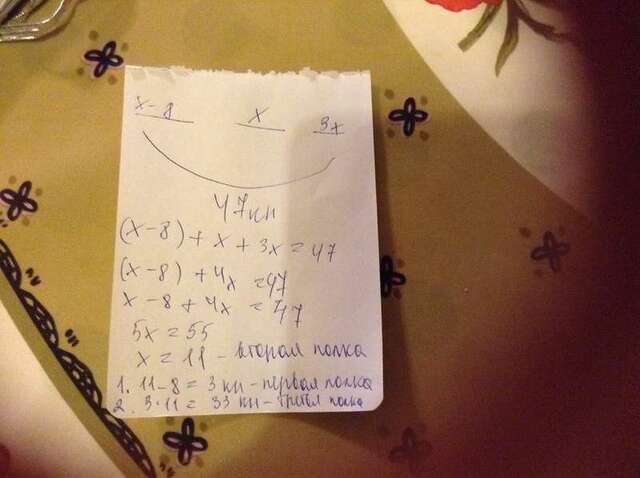 x-8 x 3x
47кн
(x-8)+x+3x=47
(x-8)+4x=47
x-8+4x=47
5x=55
x=11-вторая полка
1. 11-8=3кн-первая полка
2. 3·11=33кн-третья полка